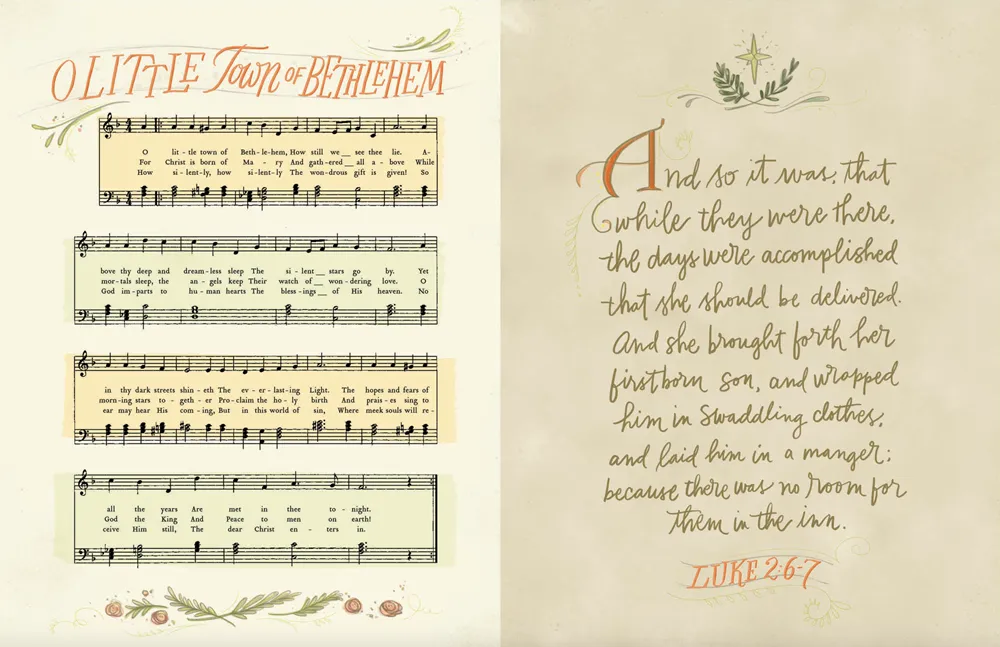 O LITTLE Town OF BETHLEHEM
O lit - tle town of Beth - le - hem, How still we __ see thee lie. A-
For Christ is born of Ma - ry And gath - ered __ all a - bove While
How si - lent - ly, how si - lent - ly The won - drous gift is given! So
bove thy deep and dream - less sleep The si - lent __ stars go by. Yet
mor - tals sleep, the an - gels keep Their watch of __ won - dering love. O
God im - parts to hu - man hearts The bless - ings __ of His heaven. No
in thy dark streets shin - eth The ev - er - last - ing Light. The hopes and fears of
morn - ing stars to - geth - er Pro - claim the ho - ly birth And prais - es sing to
ear may hear His com - ing, But in this world of sin, Where meek souls will re -
all the years Are met in thee to - night.
God the King And Peace to men on earth!
ceive Him still, The dear Christ en - ters in.
And so it was, that
while they were there,
the days were accomplished
that she should be delivered.
And she brought forth her
firstborn son, and wrapped
him in swaddling clothes,
and laid him in a manger;
because there was no room for
them in the inn.
LUKE 2:6-7